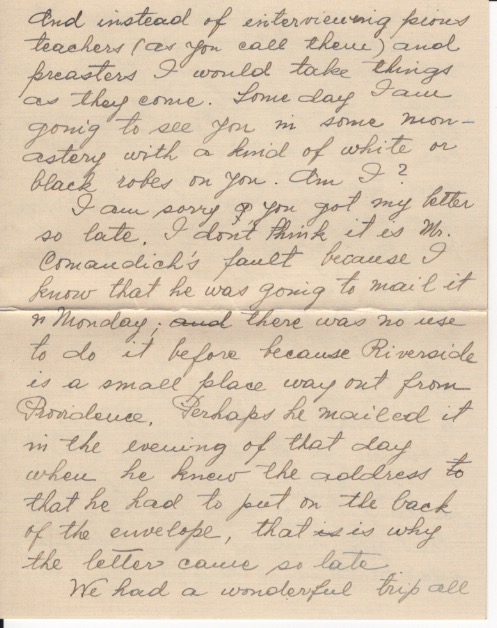 And instead of interviewing pious
teachers (as you call them) and
preasters I would take things
as they come. Some day I am
going to see you in some mon-
astery with a kind of white or
black robes on you. Am I?
I am sorry you got my letter
so late. I don't think it is Mr.
Comandich's fault because I
know that he was going to mail it
n Monday; and there was no use
to do it before because Riverside
is a small place way out from
Providence. Perhaps he mailed it
in the evening of that day
when he knew the address to
that he had to put on the back
of the envelope, that is is why
the letter came so late
We had a wonderful trip all